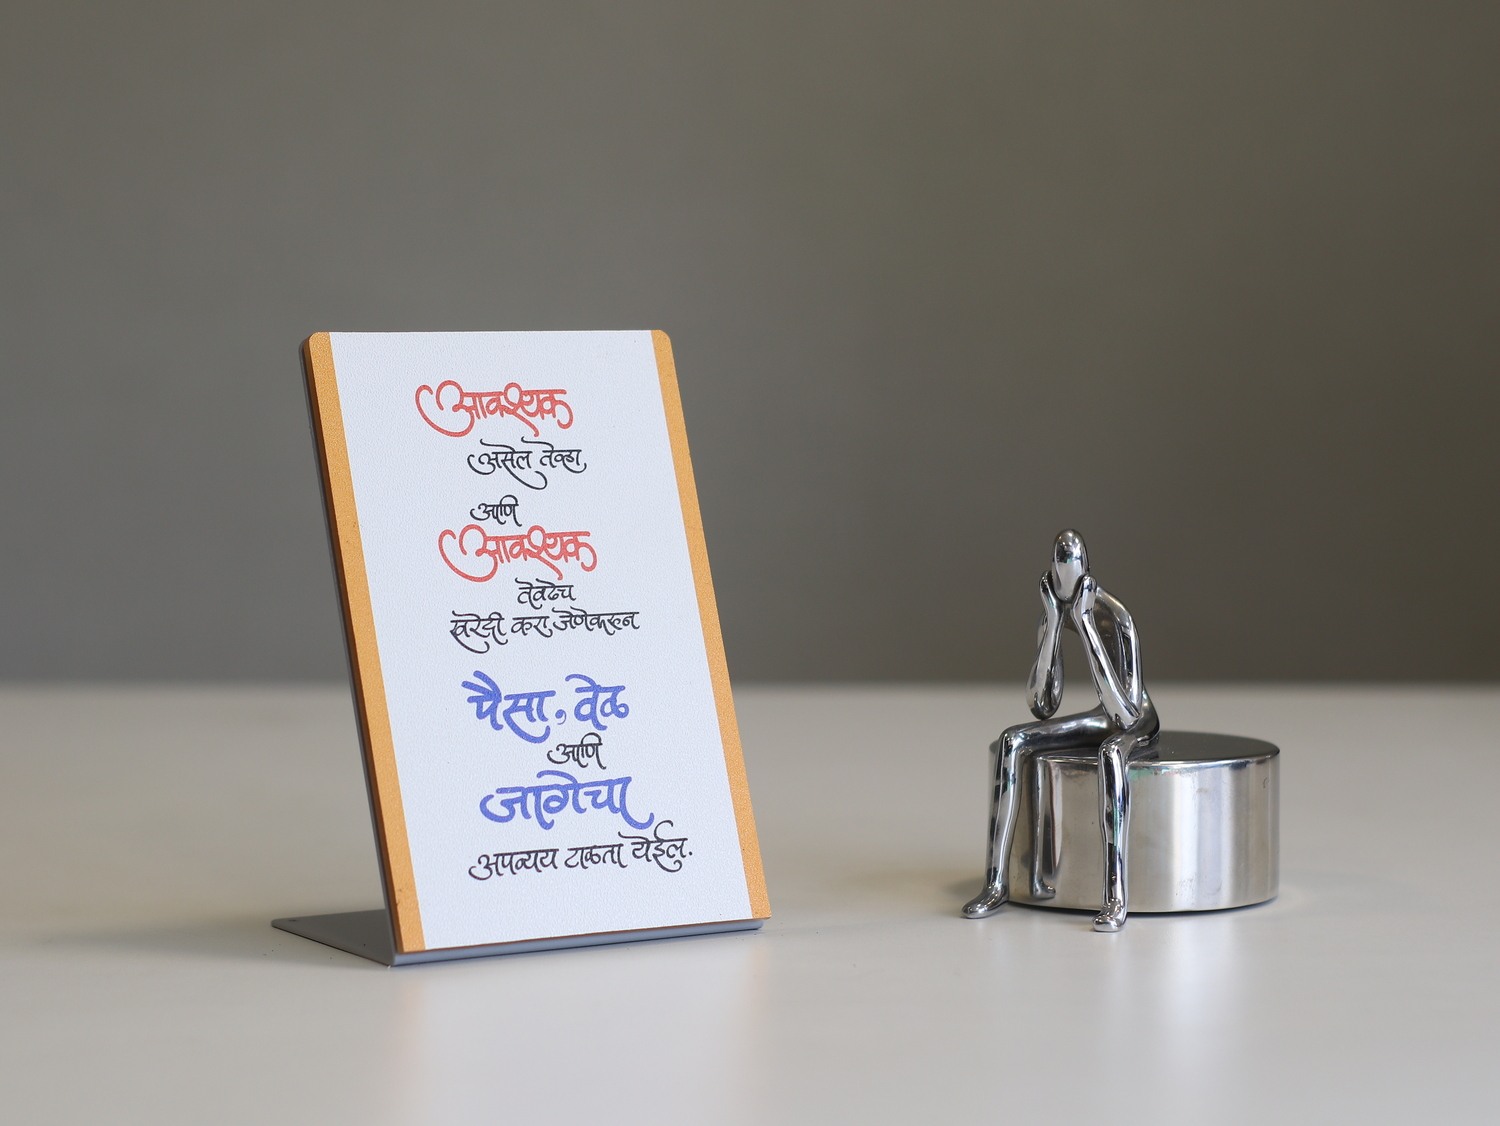 आवश्यक
असेल तेव्हा,
आणि
आवश्यक
तेवढेच
खरेदी करा, जेणेकरून
पैसा, वेळ
आणि
जागेचा
अपव्यय टाळता येईल.